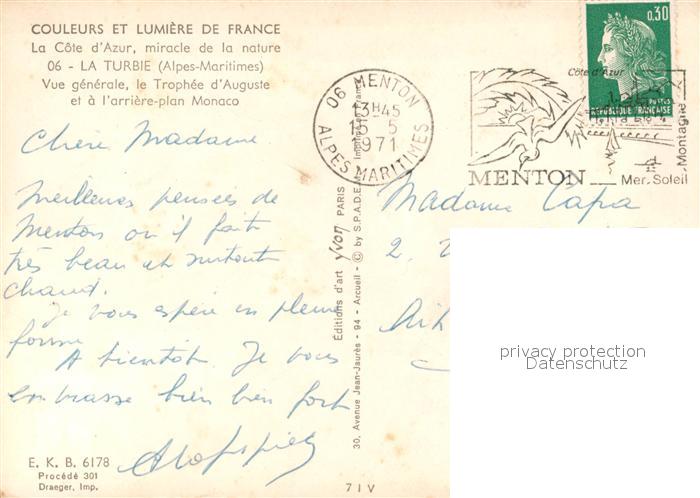 COULEURS ET LUMIÈRE DE FRANCE
La Côte d'Azur, miracle de la nature
06 - LA TURBIE (Alpes-Maritimes)
Vue générale, le Trophée d'Auguste
et à l'arrière-plan Monaco
Chère Madame
Meilleures pensées de
Menton où il fait
très beau et surtout
chaud.
Je vous espère en pleine
forme
A bientôt. Je vous
embrasse bien bien fort
E. K. B. 6178
Procédé 301
Draeger, Imp.
Éditions d'art yvon PARIS
30, Avenue Jean-Jaurès - 94 - Arcueil - © by S.P.A.D.E.M. Imprimé en France
71V
06 MENTON
13H45
15-5
1971
ALPES MARITIMES
Côte d'Azur
MENTON
Mer. Soleil
Montagne
0,30
POSTES
RÉPUBLIQUE FRANÇAISE
Madame Capa
2,
privacy protection
Datenschutz